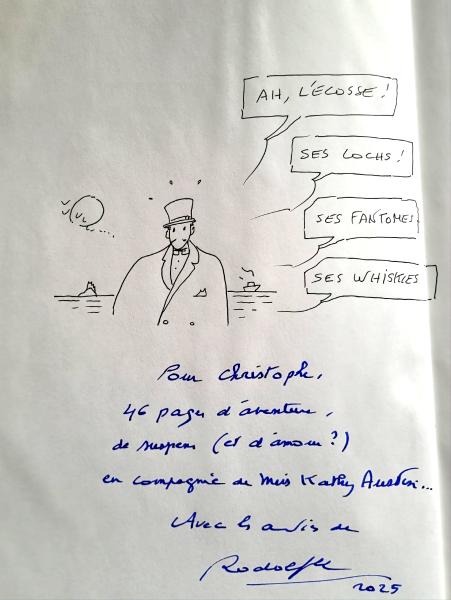 AH, L'ÉCOSSE !
SES LOCHS !
SES FANTOMES
SES WHISKIES
Pour Christophe,
46 pages d'aventure,
de suspens (et d'amour ?)
en compagnie de Miss Kathy Austin...
Avec les amitiés de
Rodolphe
2025